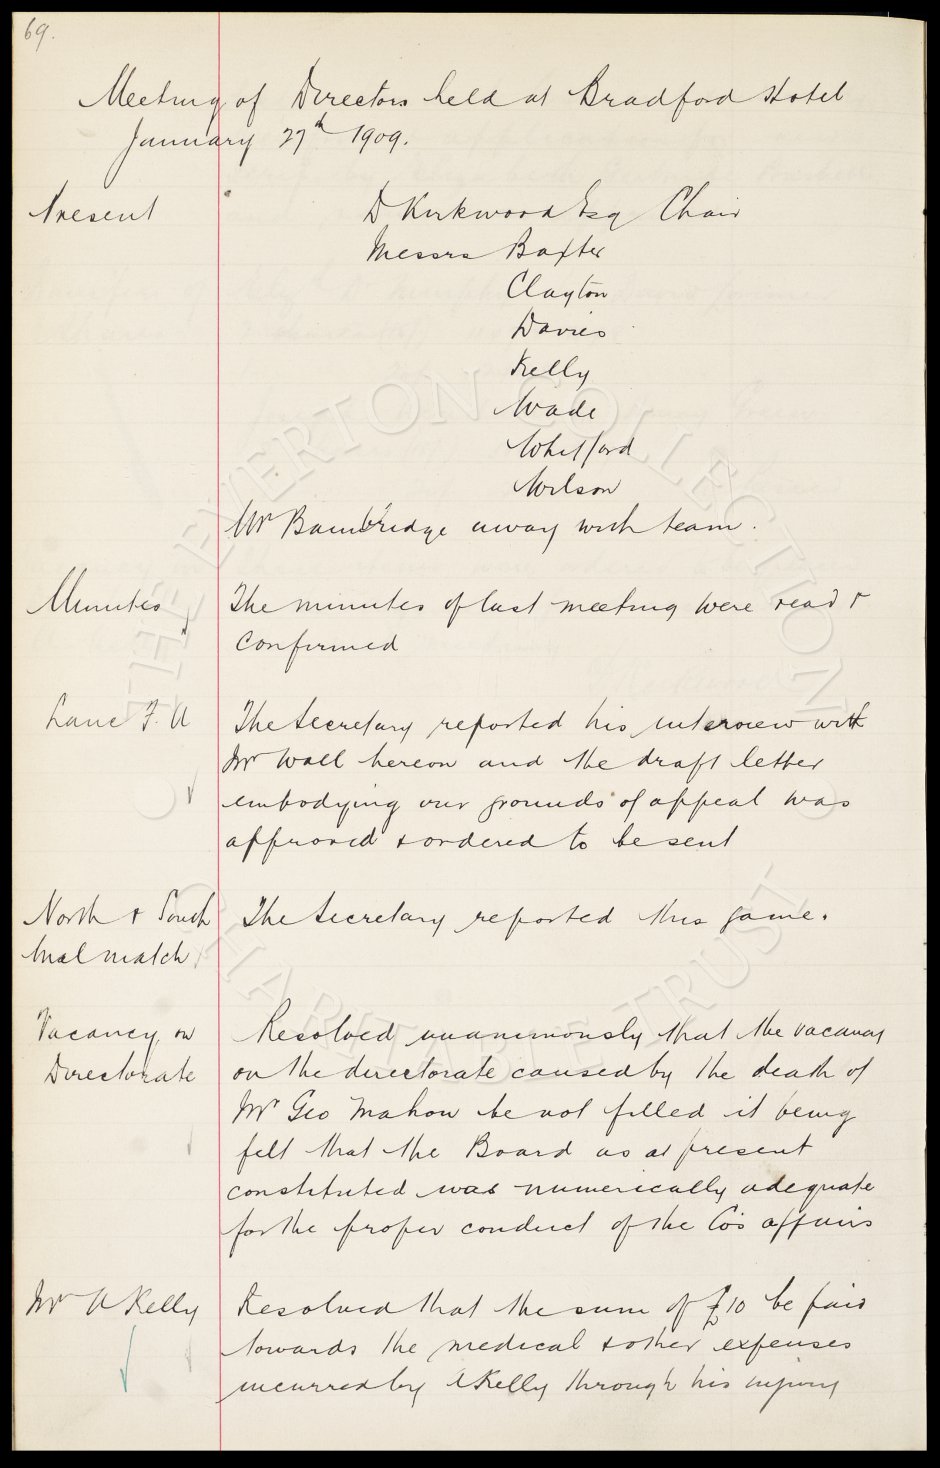 69.
Meeting of Directors held at Bradford Hotel
January 27th 1909.
Present
D Kirkwood Esq Chair
Messrs Baxter
Clayton
Davies
Kelly
Wade
Whitford
Wilson
Mr Bainbridge away with team.
Minutes
The minutes of last meeting were read &
confirmed
Lanc F. A
The Secretary reported his interview with
Mr Wall hereon and the draft letter
embodying our grounds of appeal was
approved & ordered to be sent
North & South
trial match
The Secretary reported this game.
Vacancy on
Directorate
Resolved unanimously that the vacancy
on the directorate caused by the death of
Mr Geo Mahon be not filled it being
felt that the Board as at present
constituted was numerically adequate
for the proper conduct of the Co's affairs
Mr A Kelly
Resolved that the sum of £10 be paid
towards the medical & other expenses
incurred by A Kelly through his injury
THE EVERTON COLLECTION
CHARITABLE TRUST